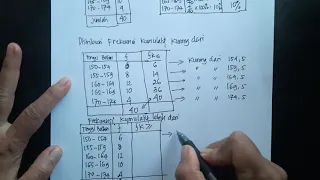 165-169
170-174 4
Jumlah 40
10%
Distribusi Frekuensi Kumulatif Kurang dari
Tinggi Badan f fk≤
150-154 6 6 Kurang dari 154,5
155-159 8 14 " " 159,5
160-164 12 26 " " 164,5
165-169 10 36 " " 169,5
170-174 4 40 " " 174,5
40
Frekuensi Kumulatif lebih dari
Tinggi Badan f fk≥
150-154 6
155-159 8
160-164 12
165-169 10
170-174 4